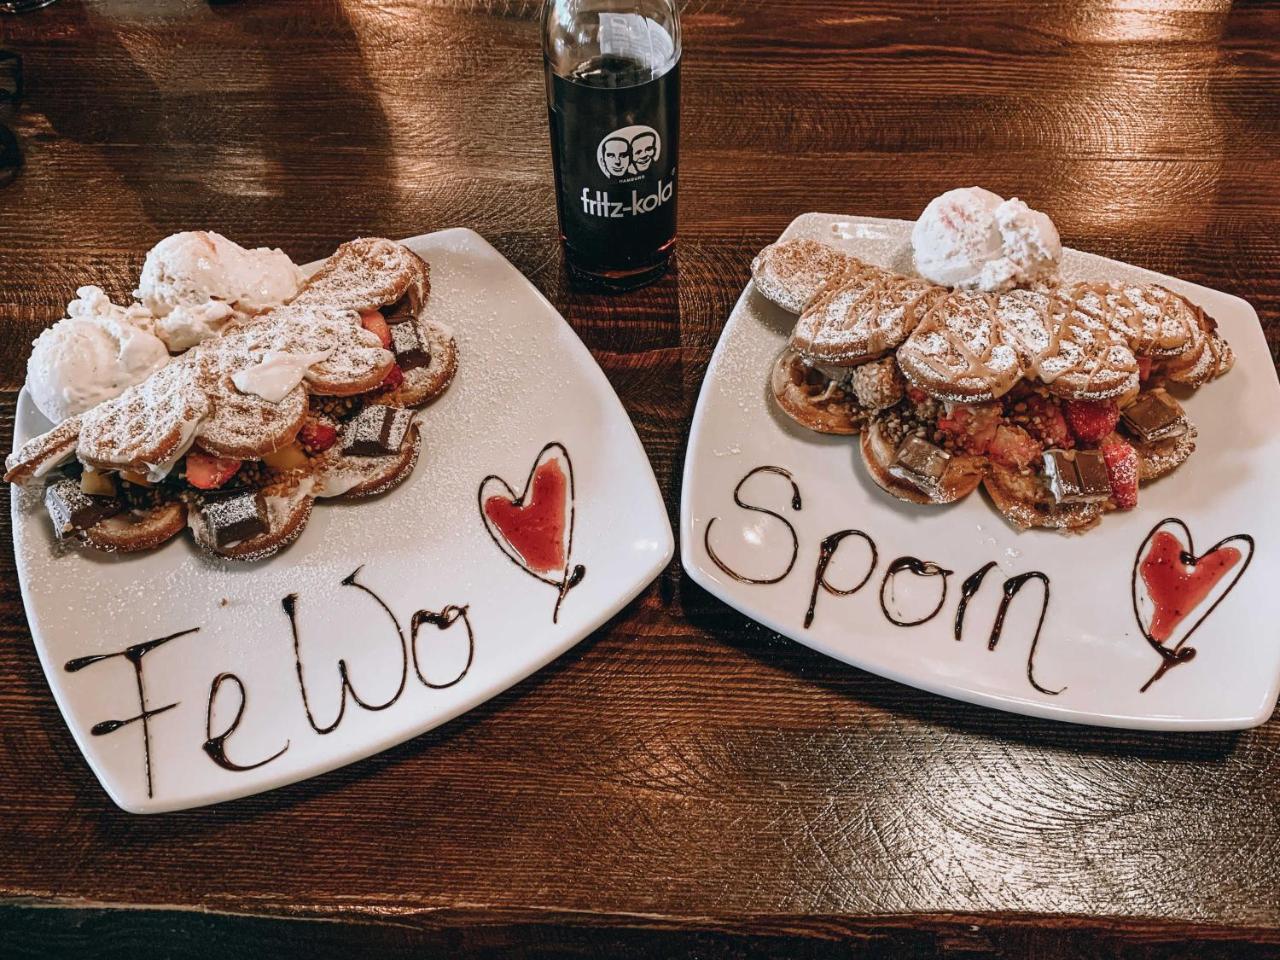 HAMBURG
fritz-kola
FeWo
Spom